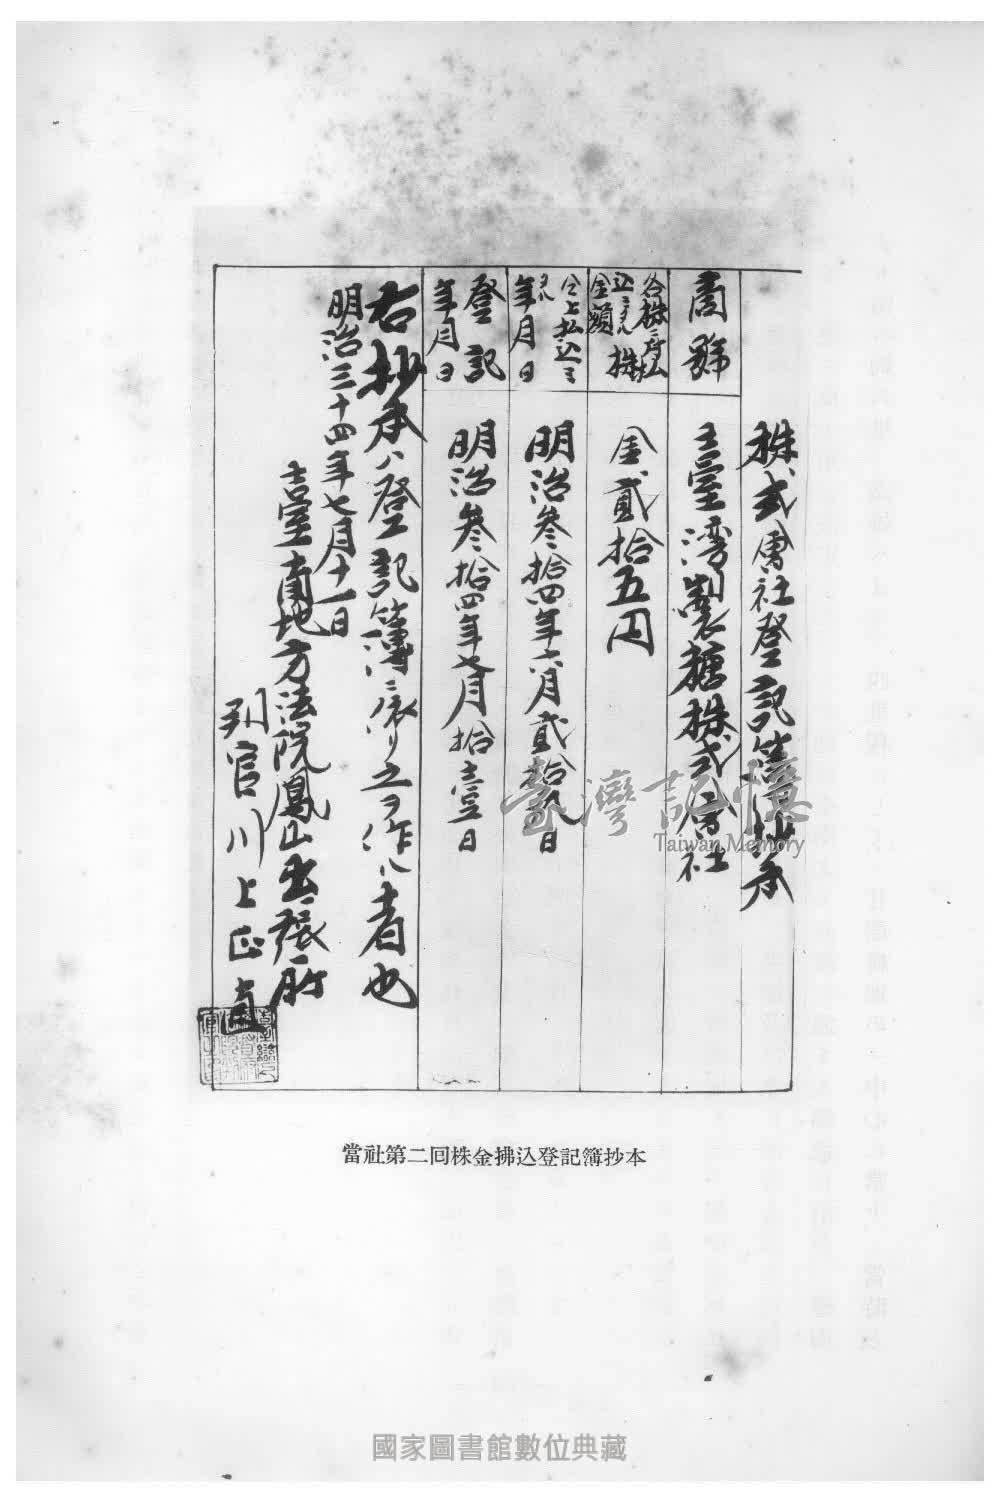 株式會社登記簿抄本
商號
臺灣製糖株式會社
各株ニ付払
込ミタル株
金額
金貳拾五円
年月日
明治参拾四年六月貳拾九日
登記
年月日
明治参拾四年七月拾壹日
右抄本ハ登記簿ニ依リ之ヲ作ル者也
明治三十四年七月十一日
臺南地方法院鳳山出張所
判官川上正直
臺灣記憶
Taiwan Memory
當社第二回株金拂込登記簿抄本
國家圖書館數位典藏